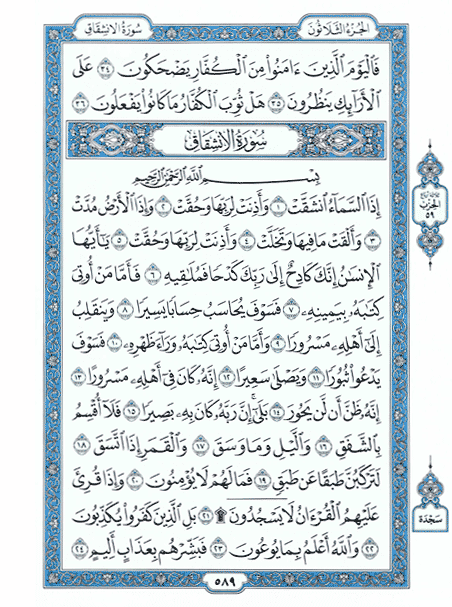 الجزء الثلاثون
سورة الانشقاق
فَالْيَوْمَ الَّذِينَ ءَامَنُوا۟ مِنَ الْكُفَّارِ يَضْحَكُونَ ٣٤ عَلَى
الْأَرَآئِكِ يَنظُرُونَ ٣٥ هَلْ ثُوِّبَ الْكُفَّارُ مَا كَانُوا۟ يَفْعَلُونَ ٣٦
سُورَةُ الانْشِقَاقِ
بِسْمِ اللَّهِ الرَّحْمَٰنِ الرَّحِيمِ
إِذَا السَّمَآءُ انشَقَّتْ ١ وَأَذِنَتْ لِرَبِّهَا وَحُقَّتْ ٢ وَإِذَا الْأَرْضُ مُدَّتْ
٣ وَأَلْقَتْ مَا فِيهَا وَتَخَلَّتْ ٤ وَأَذِنَتْ لِرَبِّهَا وَحُقَّتْ ٥ يَٰٓأَيُّهَا
الْإِنسَٰنُ إِنَّكَ كَادِحٌ إِلَىٰ رَبِّكَ كَدْحًا فَمُلَٰقِيهِ ٦ فَأَمَّا مَنْ أُوتِىَ
كِتَٰبَهُۥ بِيَمِينِهِۦ ٧ فَسَوْفَ يُحَاسَبُ حِسَابًا يَسِيرًا ٨ وَيَنقَلِبُ
إِلَىٰٓ أَهْلِهِۦ مَسْرُورًا ٩ وَأَمَّا مَنْ أُوتِىَ كِتَٰبَهُۥ وَرَآءَ ظَهْرِهِۦ ١٠ فَسَوْفَ
يَدْعُوا۟ ثُبُورًا ١١ وَيَصْلَىٰ سَعِيرًا ١٢ إِنَّهُۥ كَانَ فِىٓ أَهْلِهِۦ مَسْرُورًا ١٣
إِنَّهُۥ ظَنَّ أَن لَّن يَحُورَ ١٤ بَلَىٰٓ إِنَّ رَبَّهُۥ كَانَ بِهِۦ بَصِيرًا ١٥ فَلَآ أُقْسِمُ
بِالشَّفَقِ ١٦ وَالَّيْلِ وَمَا وَسَقَ ١٧ وَالْقَمَرِ إِذَا اتَّسَقَ ١٨
لَتَرْكَبُنَّ طَبَقًا عَن طَبَقٍ ١٩ فَمَا لَهُمْ لَا يُؤْمِنُونَ ٢٠ وَإِذَا قُرِئَ
عَلَيْهِمُ الْقُرْءَانُ لَا يَسْجُدُونَ ۩ ٢١ بَلِ الَّذِينَ كَفَرُوا۟ يُكَذِّبُونَ
٢٢ وَاللَّهُ أَعْلَمُ بِمَا يُوعُونَ ٢٣ فَبَشِّرْهُم بِعَذَابٍ أَلِيمٍ ٢٤
الحزب
٥٩
سجدة
٥٨٩